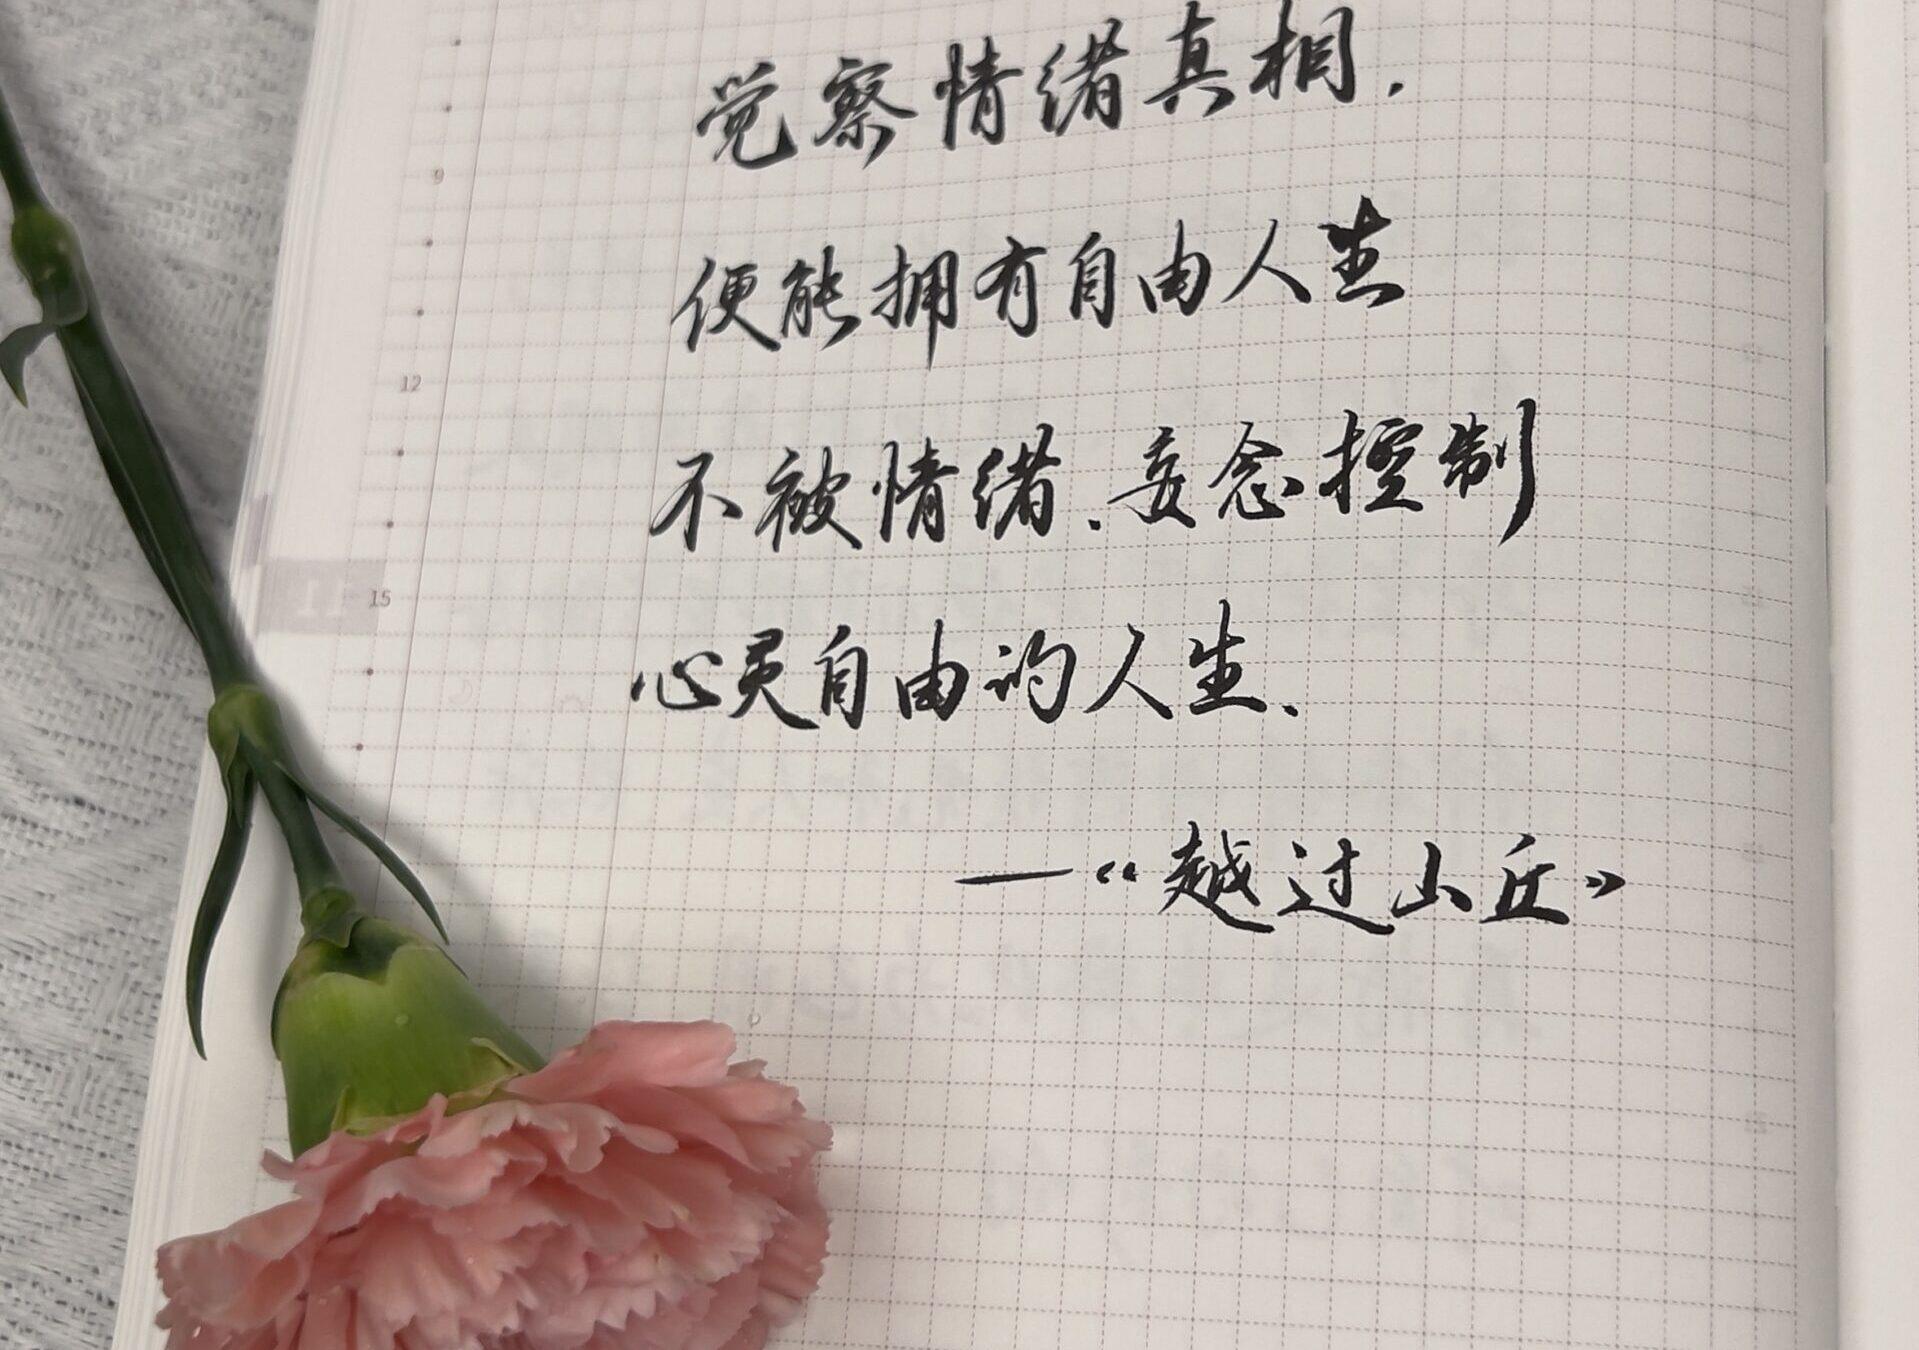 觉察情绪真相.
便能拥有自由人生
不被情绪、妄念控制
心灵自由的人生、
—《越过山丘》
9
12
15
11